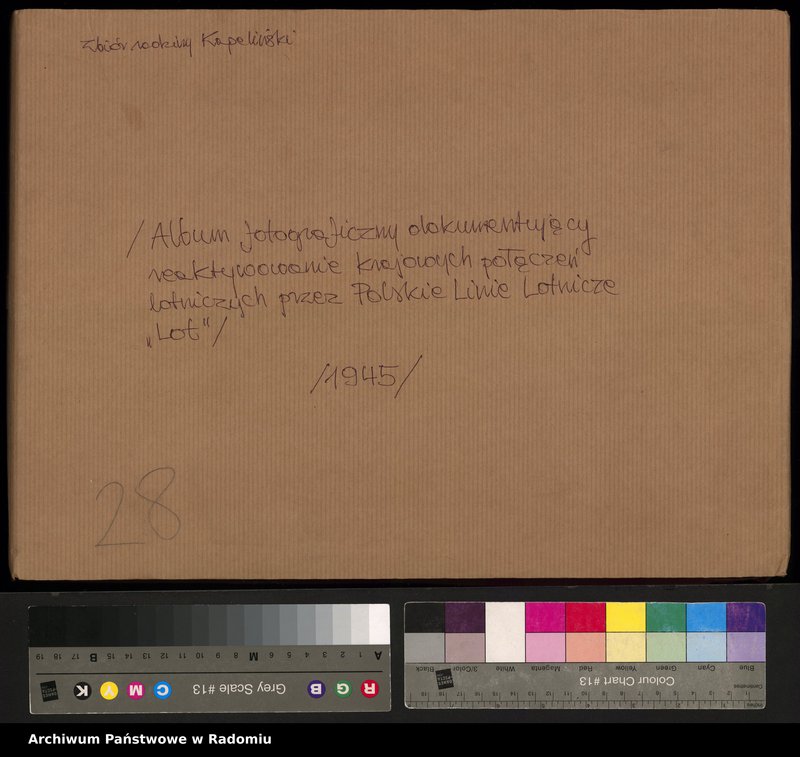 Zbiór rodziny Kapeliński
/Album fotograficzny dokumentujący
reaktywowanie krajowych połączeń
lotniczych przez Polskie Linie Lotnicze
„Lot"/
/1945/
28
A 1 2 3 4 5 6 M 8 9 10 11 12 13 14 15 B 17 18 19
R G B Grey Scale #13 C M Y K
Blue Cyan Green Yellow Red Magenta White 3/Color Black
Colour Chart #13
Centimetres
Inches
Archiwum Państwowe w Radomiu